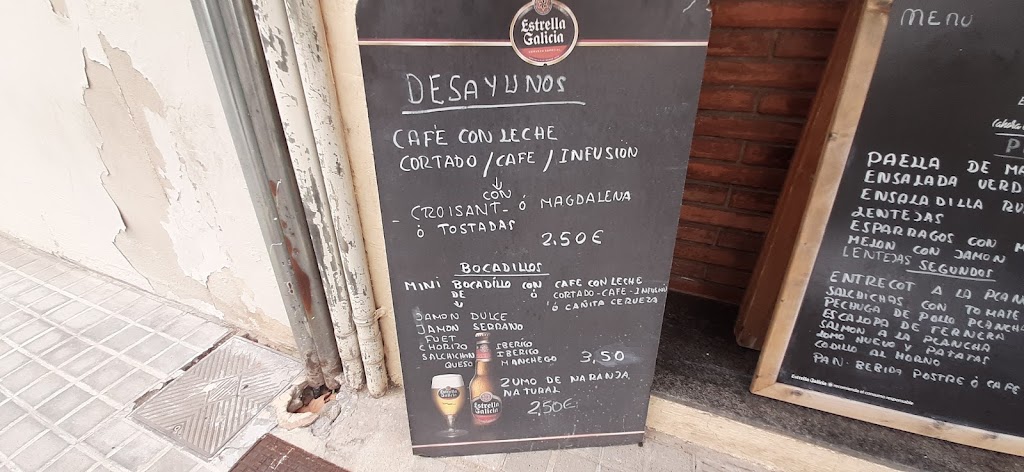 Estrella
Galicia
DESAYUNOS
CAFÉ CON LECHE
CORTADO/CAFE/INFUSIÓN
CON
- CROISANT - Ó MAGDALENA
Ò TOSTADAS
2.50€
BOCADILLOS
MINI BOCADILLO CON CAFE CON LECHE
DE Ó CORTADO-CAFE-INFUSION
Ó CAÑITA CERVEZA
JAMON DULCE
JAMON SERRANO
FUET
CHORIZO IBERICO
SALCHICHON IBERICO
QUESO MANCHEGO 3,50
ZUMO DE NARANJA
NATURAL
2,50€
Estrella
Galicia
Estrella
Galicia
MENU
PAELLA DE
ENSALADA VERD
ENSALADILLA RU
LENTEJAS
ESPARRAGOS CON
MELON CON JAMON
LENTEJAS SEGUNDOS
ENTRECOT A LA PLAN
SALCHICHAS CON TOMATE
PECHUGA DE POLLO PLANCH
ESCALOPA DE TERNERA
SALMON A LA PLANCHA
LOMO HUEVO Y PATATAS
CABALLO AL HORNO
PAN. BEBIDA POSTRE Ó CAFE